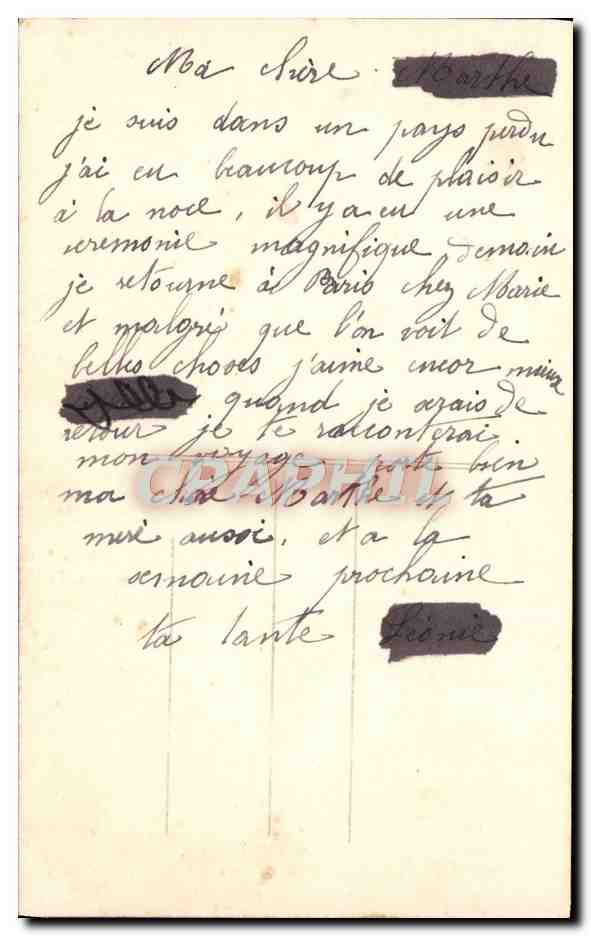 Ma chère Marthe
je suis dans un pays perdu
j'ai eu beaucoup de plaisir
à la noce, il y a eu une
ceremonie magnifique demain
je retourne à Paris chez Marie
et malgré que l'on voit de
belles choses j'aime encor mieux
quand je serais de
retour je te raconterai
mon voyage porte bien
ma chère Marthe et ta
mère aussi, et a la
semaine prochaine
ta tante Léonie
CPAPHIL